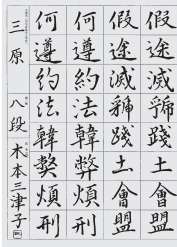 假途滅虢踐土會盟
假途滅虢踐土會盟
何遵約法韓弊煩刑
何遵約法韓弊煩刑
三原 八段 木本三津子